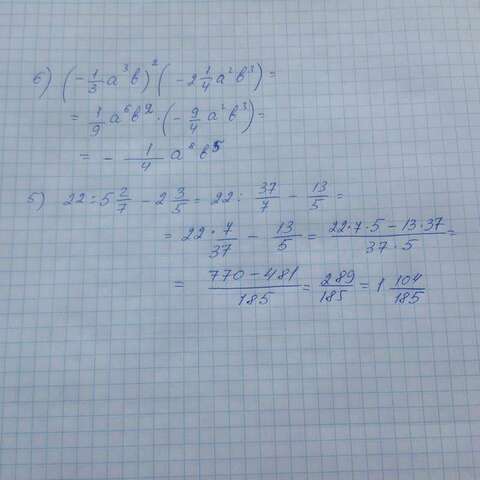 6) (-1/3 a³b)² (-2 1/4 a²b³) =
= 1/9 a⁶b² · (-9/4 a²b³) =
= - 1/4 a⁸b⁵
5) 22 : 5 2/7 - 2 3/5 = 22 : 37/7 - 13/5 =
= 22 · 7/37 - 13/5 = (22·7·5 - 13·37)/(37·5) =
= (770 - 481)/185 = 289/185 = 1 104/185